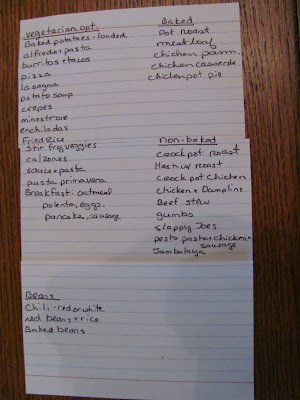 vegetarian opt.
Baked potatoes - loaded
alfredo + pasta
burritos + tacos
pizza
lasagna
potato soup
crepes
minestrone
enchiladas
Fried Rice
Stir fry veggies
calzones
sauce + pasta
pasta primavera
Breakfast: oatmeal
polenta, eggs,
pancake, sausage
Beans
Chili - red or white
red beans + rice
Baked beans
Baked
Pot roast
meatloaf
chicken parm.
Chicken casserole
chicken pot pie
Non-baked
crockpot roast
Hash w/ roast
Crock pot chicken
chicken + Dumplins
Beef stew
gumbo
sloppy Joes
pesto pasta + chicken +
sausage
Jambalaya